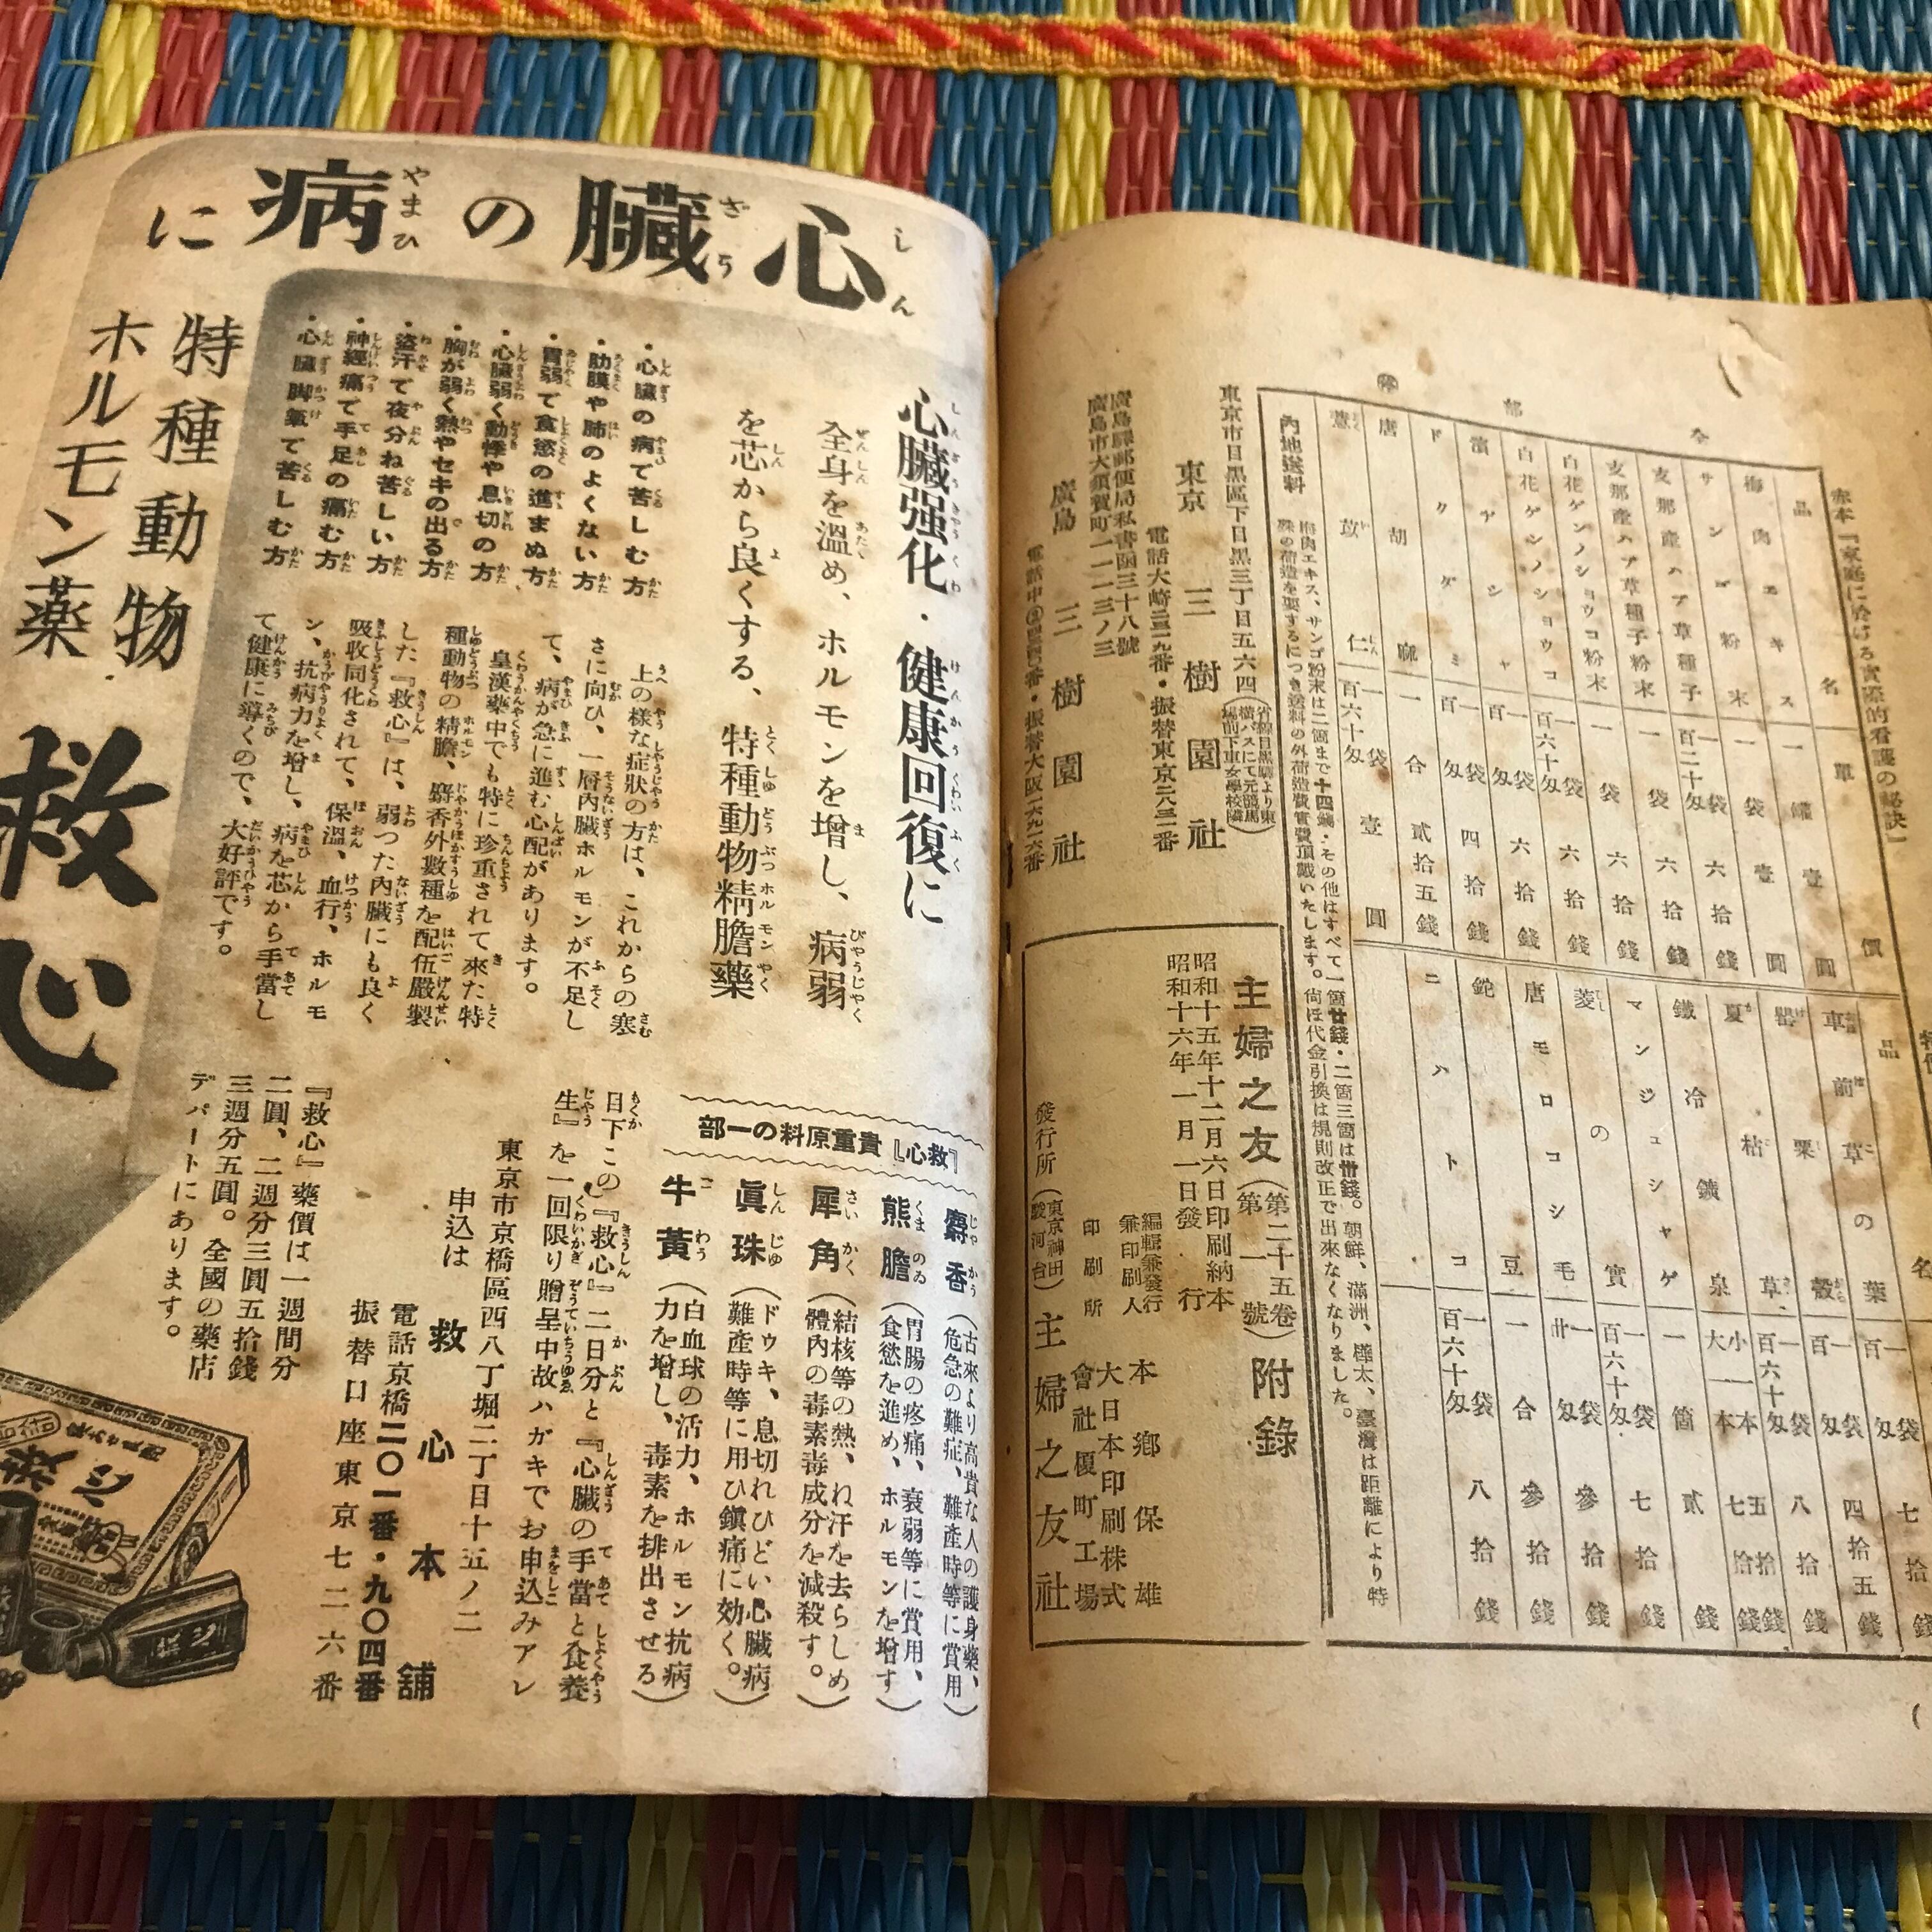 赤本「家庭に於ける實際的看護の秘訣」
品名 單價
梅肉エキス 一罐 壹圓
サンゴ粉末 一袋 壹圓
支那産ハブ草種子 一袋百二十匁 六拾錢
支那産ハブ草種子粉末 一袋 六拾錢
白花ゲンノショウコ粉末 一袋 六拾錢
白花ゲンノショウコ 一袋百六十匁 六拾錢
濱アシャ 一袋百匁 六拾錢
ドクダミ 一袋百匁 四拾錢
唐胡麻 一合 貳拾五錢
薏苡仁 一袋百六十匁 壹圓
品名
車前草の葉 一袋百匁 七拾錢
罌粟殼 一袋百匁 四拾五錢
夏枯草 一袋百六十匁 八拾錢
鐵冷鑛泉 小一本 五拾錢 大一本 七拾錢
マンジュシャゲ 一箇 貳錢
菱の實 一袋百六十匁 七拾錢
唐モロコシ毛 一袋卅匁 參拾錢
鉈豆 一合 參拾錢
ニハトコ 一袋百六十匁 八拾錢
內地送料
梅肉エキス、サンゴ粉末は二箇まで十四錢・その他はすべて一箇廿錢・二箇三箇は卅錢。朝鮮、滿洲、樺太、臺灣は距離により特
殊の荷造を要するにつき送料の外荷造費實費頂戴いたします。尙ほ代金引換は規則改正で出來なくなりました。
東京市目黑區下目黑三丁目五六四
東京 三樹園社
電話大崎二四二九番・振替東京二八三二番
廣島驛郵便局私書函三十八號
廣島市大須賀町一一一三ノ三
廣島 三樹園社
主婦之友(第二十五卷第一號)附錄
昭和十五年十二月六日印刷納本
昭和十六年一月一日發行
編輯兼發行兼印刷人 本鄕保雄
印刷所 大日本印刷株式會社榎町工場
發行所(東京神田駿河台)主婦之友社
心臟の病に
しんざうやまひ
心臟强化・健康回復に
全身を溫め、ホルモンを增し、病弱
を芯から良くする、特種動物精膽藥
・心臟の病で苦しむ方
・肋膜や肺のよくない方
・胃弱で食慾の進まぬ方
・心臟弱く動悸や息切の方
・胸が弱く熱やセキの出る方
・盜汗で夜分ね苦しい方
・神經痛で手足の痛む方
・心臟脚氣で苦しむ方
上の樣な症狀の方は、これからの寒
さに向ひ、一層內臟ホルモンが不足し
て、病が急に進む心配があります。
皇漢藥中でも特に珍重されて來た特
種動物の精膽、麝香外數種を配伍嚴製
した『救心』は、弱つた內臟にも良く
吸收同化されて、保溫、血行、ホルモ
ン、抗病力を增し、病を芯から手當し
て健康に導くので、大好評です。
特種動物
ホルモン藥
救心
『救心』貴重原料の一部
麝香(古來より高貴な人の護身藥、危急の難症、難產時等に賞用)
熊膽(胃腸の疼痛、衰弱等に賞用、食慾を進め、ホルモンを增す)
犀角(結核等の熱、ね汗を去らしめ體內の毒素毒成分を減殺す。)
眞珠(ドウキ、息切れひどい心臟病難產時等に用ひ鎭痛に効く。)
牛黃(白血球の活力、ホルモン抗病力を增し、毒素を排出させる)
目下この『救心』二日分と『心臟の手當と食養
生』を一回限り贈呈中故ハガキでお申込みアレ
東京市京橋區西八丁堀二丁目十五ノ二
申込は 救心本舖
電話京橋二〇一番・九〇四番
振替口座東京七二六番
『救心』藥價は一週間分
二圓、二週分三圓五拾錢
三週分五圓。全國の藥店
デパートにあります。
救心